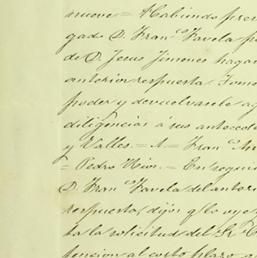 nueve = Habiendo pre
gado D. Fran.co Favela p
de D. Jesus Jimenes hagan
anterior respuesta. Tom
poder y devuelvasele a
diligencias á sus antecede
y Valles. = A = Fran.co
= Pedro = En segui
D. Fran.co Favela del anteri
respuesta, dijo: q.e lo oye
ta la solicitud del Sr
pension al corto plazo